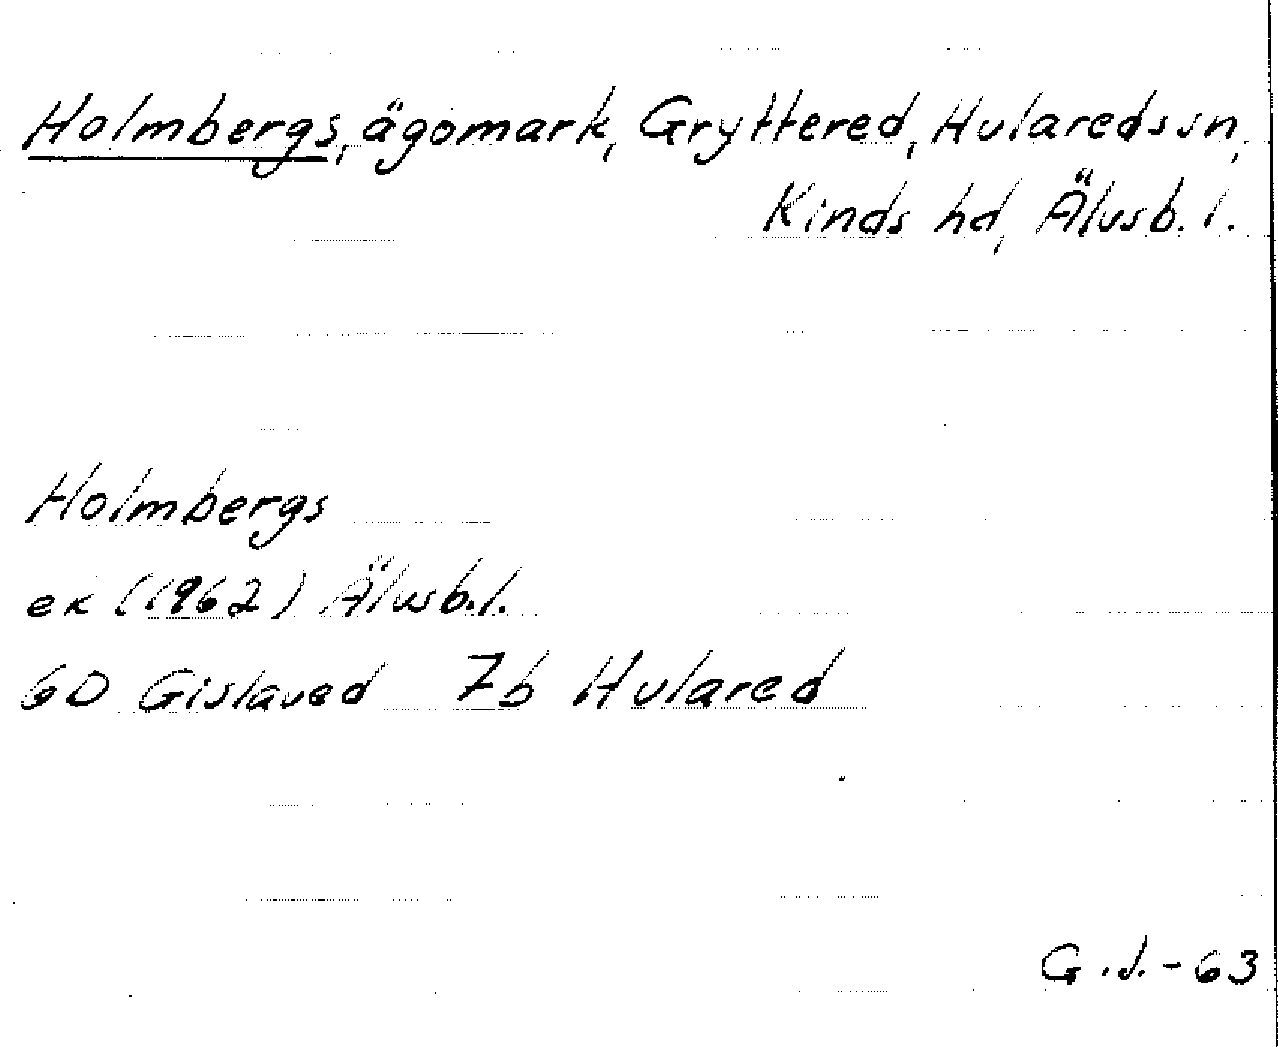 Holmbergs, ägomark, Gryttered, Hulareds sn,
Kinds hd, Älvsb. l.
Holmbergs
ek (1962) Älvsb. l.
6D Gislaved 7b Hulared
G.J.-63